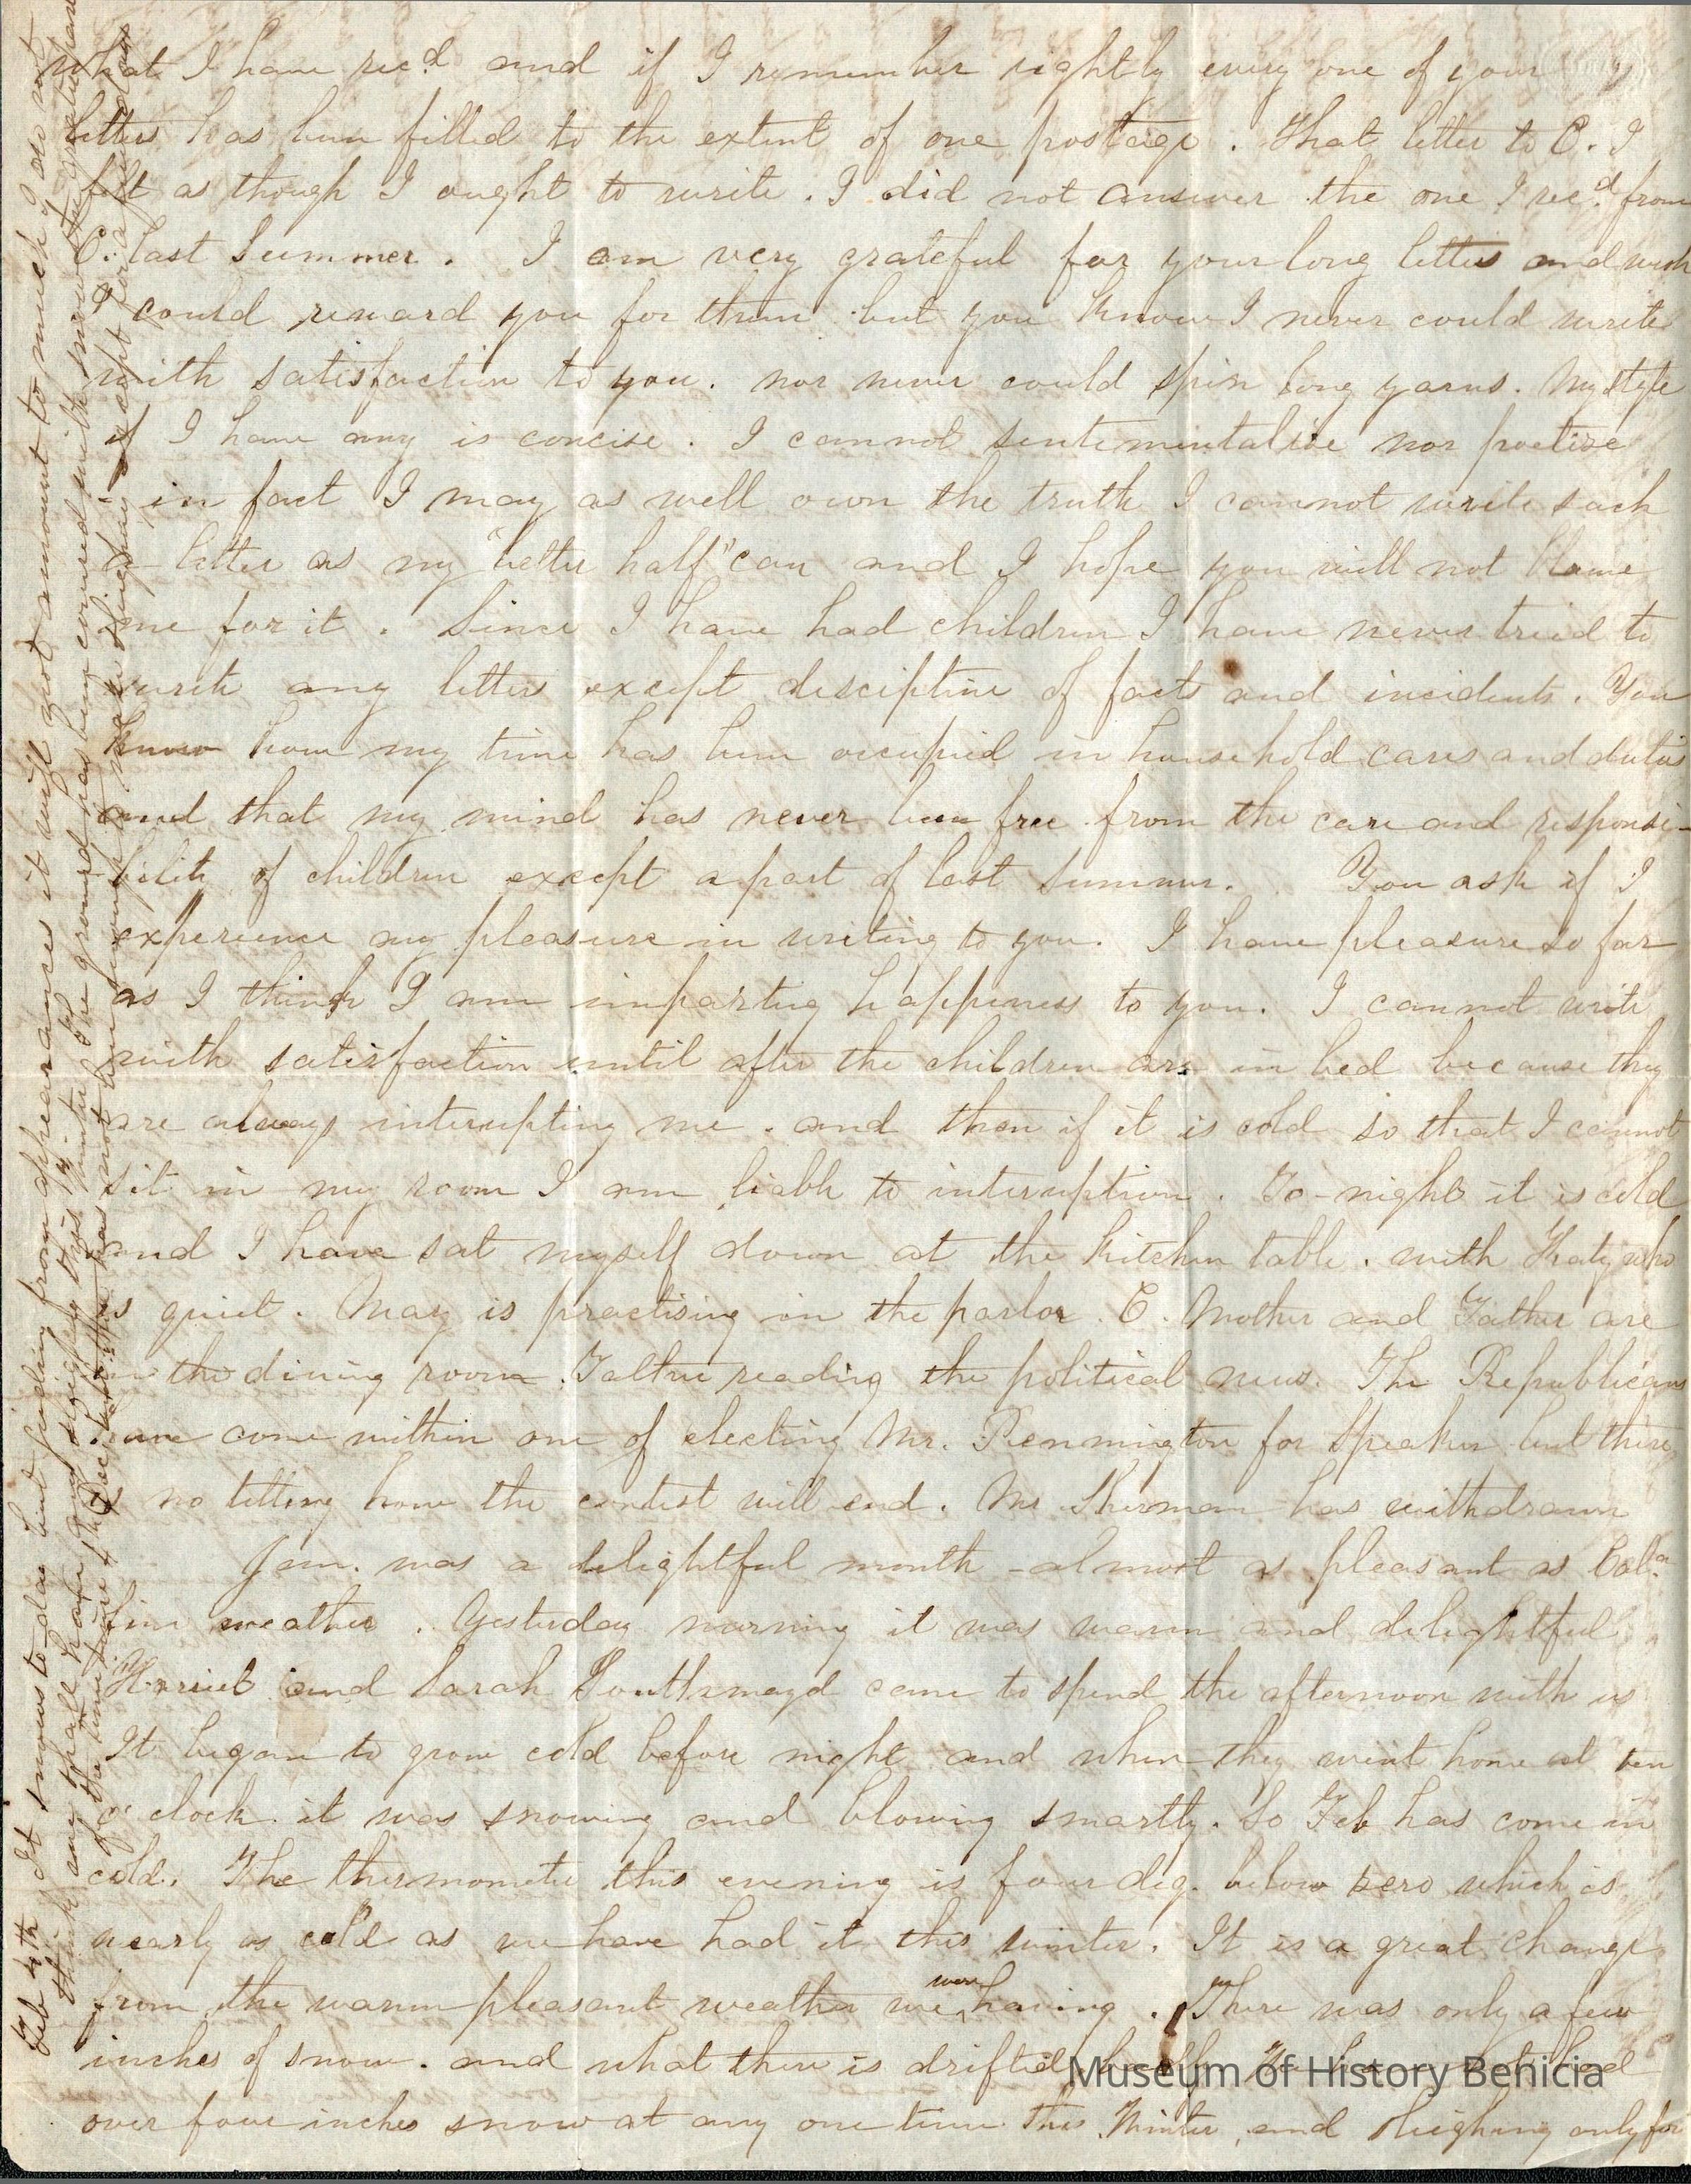 what I have rec.d and if I remember rightly every one of your
letters has been filled to the extent of one postage. That letter to C. I
felt as though I ought to write. I did not answer the one I rec.d from
C. last Summer. I am very grateful for your long letters and wish
I could reward you for them but you know I never could write
with satisfaction to you. nor never could spin long yarns. My style
if I have any is concise. I cannot sentimentalise nor poetise
- in fact I may as well own the truth I cannot write such
a letter as my "better half" can and I hope you will not blame
me for it. Since I have had children I have never tried to
write any letter except desciptive of facts and incidents. You
know how my time has been occupied in household cares and duties
and that my mind has never been free from the care and responsi-
-bility of children except a part of last Summer. You ask if I
experience any pleasure in writing to you. I have pleasure so far
as I think I am imparting happiness to you. I cannot write
with satisfaction until after the children are in bed because they
are always interupting me. and then if it is cold so that I cannot
sit in my room I am liable to interuption. To-night it is cold
and I have sat myself down at the kitchen table. with Katy who
is quiet. May is practising in the parlor. C. Mother and Father are
in the dining room. Father reading the political news. The Republicans
have come within one of electing Mr. Pennington for Speaker but there
is no telling how the contest will end. Mr. Sherman has withdrawn
Jan. was a delightful month - almost as pleasant as Cal.a
fine weather. Yesterday morning it was warm and delightful
Harriet and Sarah Southmayd came to spend the afternoon with us
It began to grow cold before night and when they went home at ten
o' clock it was snowing and blowing smartly. So Feb has come in
cold. The thermometer this evening is four deg. below zero which is
nearly as cold as we have had it this winter. It is a great change
from the warm pleasant weather we were having. There was only a few
inches of snow. and what there is drifted had
over four inches snow at any one time this Winter, and sleighing only for
Feb 4th It snows to-day but judging from appearances it will not amount to much. I do not
think we shall have any sleighing this Winter. The ground has been covered with snow the greater part
of the time since the but there has not been enough to make sleighing except for a few days